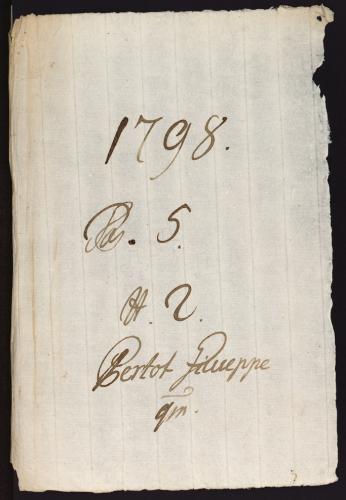 1798.
5.
2.
Bertot Giuseppe
qm.